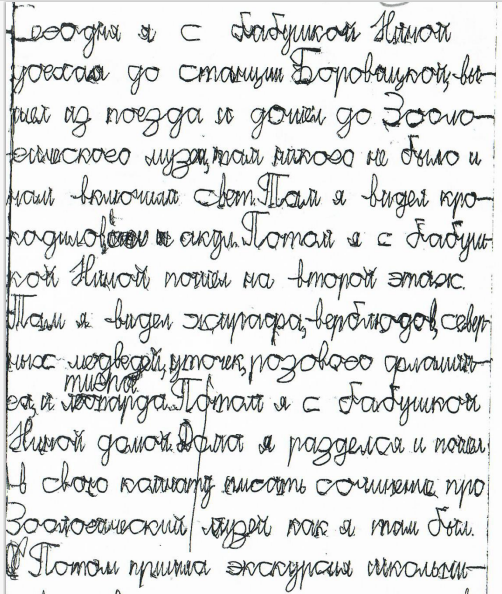 Сегодня я с бабушкой Ниной
уехал до станции Боровицкой, вы-
шел из поезда и дошёл до Зооло-
гического музея, там никого не было и
нам включили свет. Там я видел кро-
кодилов и акул. Потом я с бабуш-
кой Ниной пошёл на второй этаж.
Там я видел жирафа, верблюдов, север-
ных медведей, уточек, розового фламин-
тигра
и леопарда. Потом я с бабушкой
Ниной домой. Дома я разделся и пошёл
в свою комнату писать сочинение про
Зоологический музей как я там был.
Потом пришла экскурсия школьни-